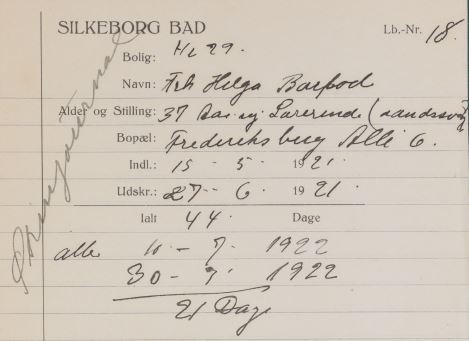 SILKEBORG BAD
Lb.-Nr. 18.
Bolig: HL 29.
Navn: Frk Helga Barfod
Alder og Stilling: 37 Lærerinde
Bopæl: Frederiksberg Alle 6.
Indl.: 15 - 5 - 1921.
Udskr.: 27 - 6 - 1921.
Ialt 44. Dage
10 - 7 - 1922
30 - 7 - 1922
21 Dage